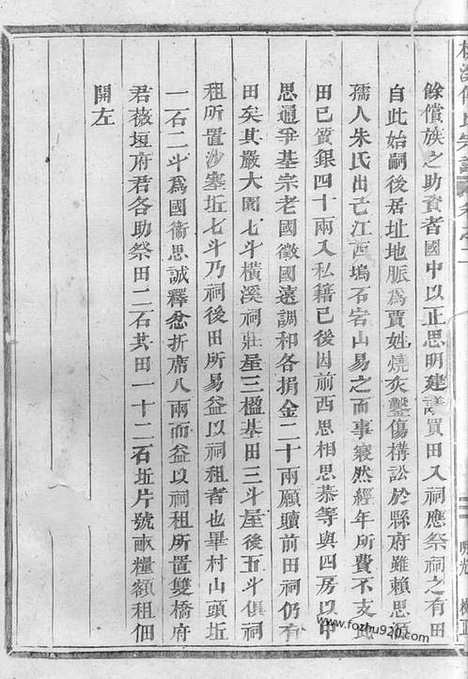 餘償族之助資者國中以正思明建議買田入祠應祭祠之有田
自此始嗣後居址地脈為賈姓燒灰鑿傷構訟於縣府雖賴思源
孺人朱氏出己江西塢石宕山易之而事寢然經年所費不支此
田已質銀四十兩入私籍已後因前西思相思恭等與四房以中
思通爭基宗老國徵國遠調和各捐金二十兩願贖前田祠仍有
田矣其嚴大園七斗橫溪祠莊屋三楹基田三斗屋後五斗俱祠
租所置沙塞坵七斗乃祠後田所易益以祠租者也畢村山頭坵
一石二斗為國衛思誠釋忿折席八兩而益以祠租所置雙橋府
君薇垣府君各助祭田二石其田一十二石坵片號畝糧額租佃
開左
www.fozhu920.com